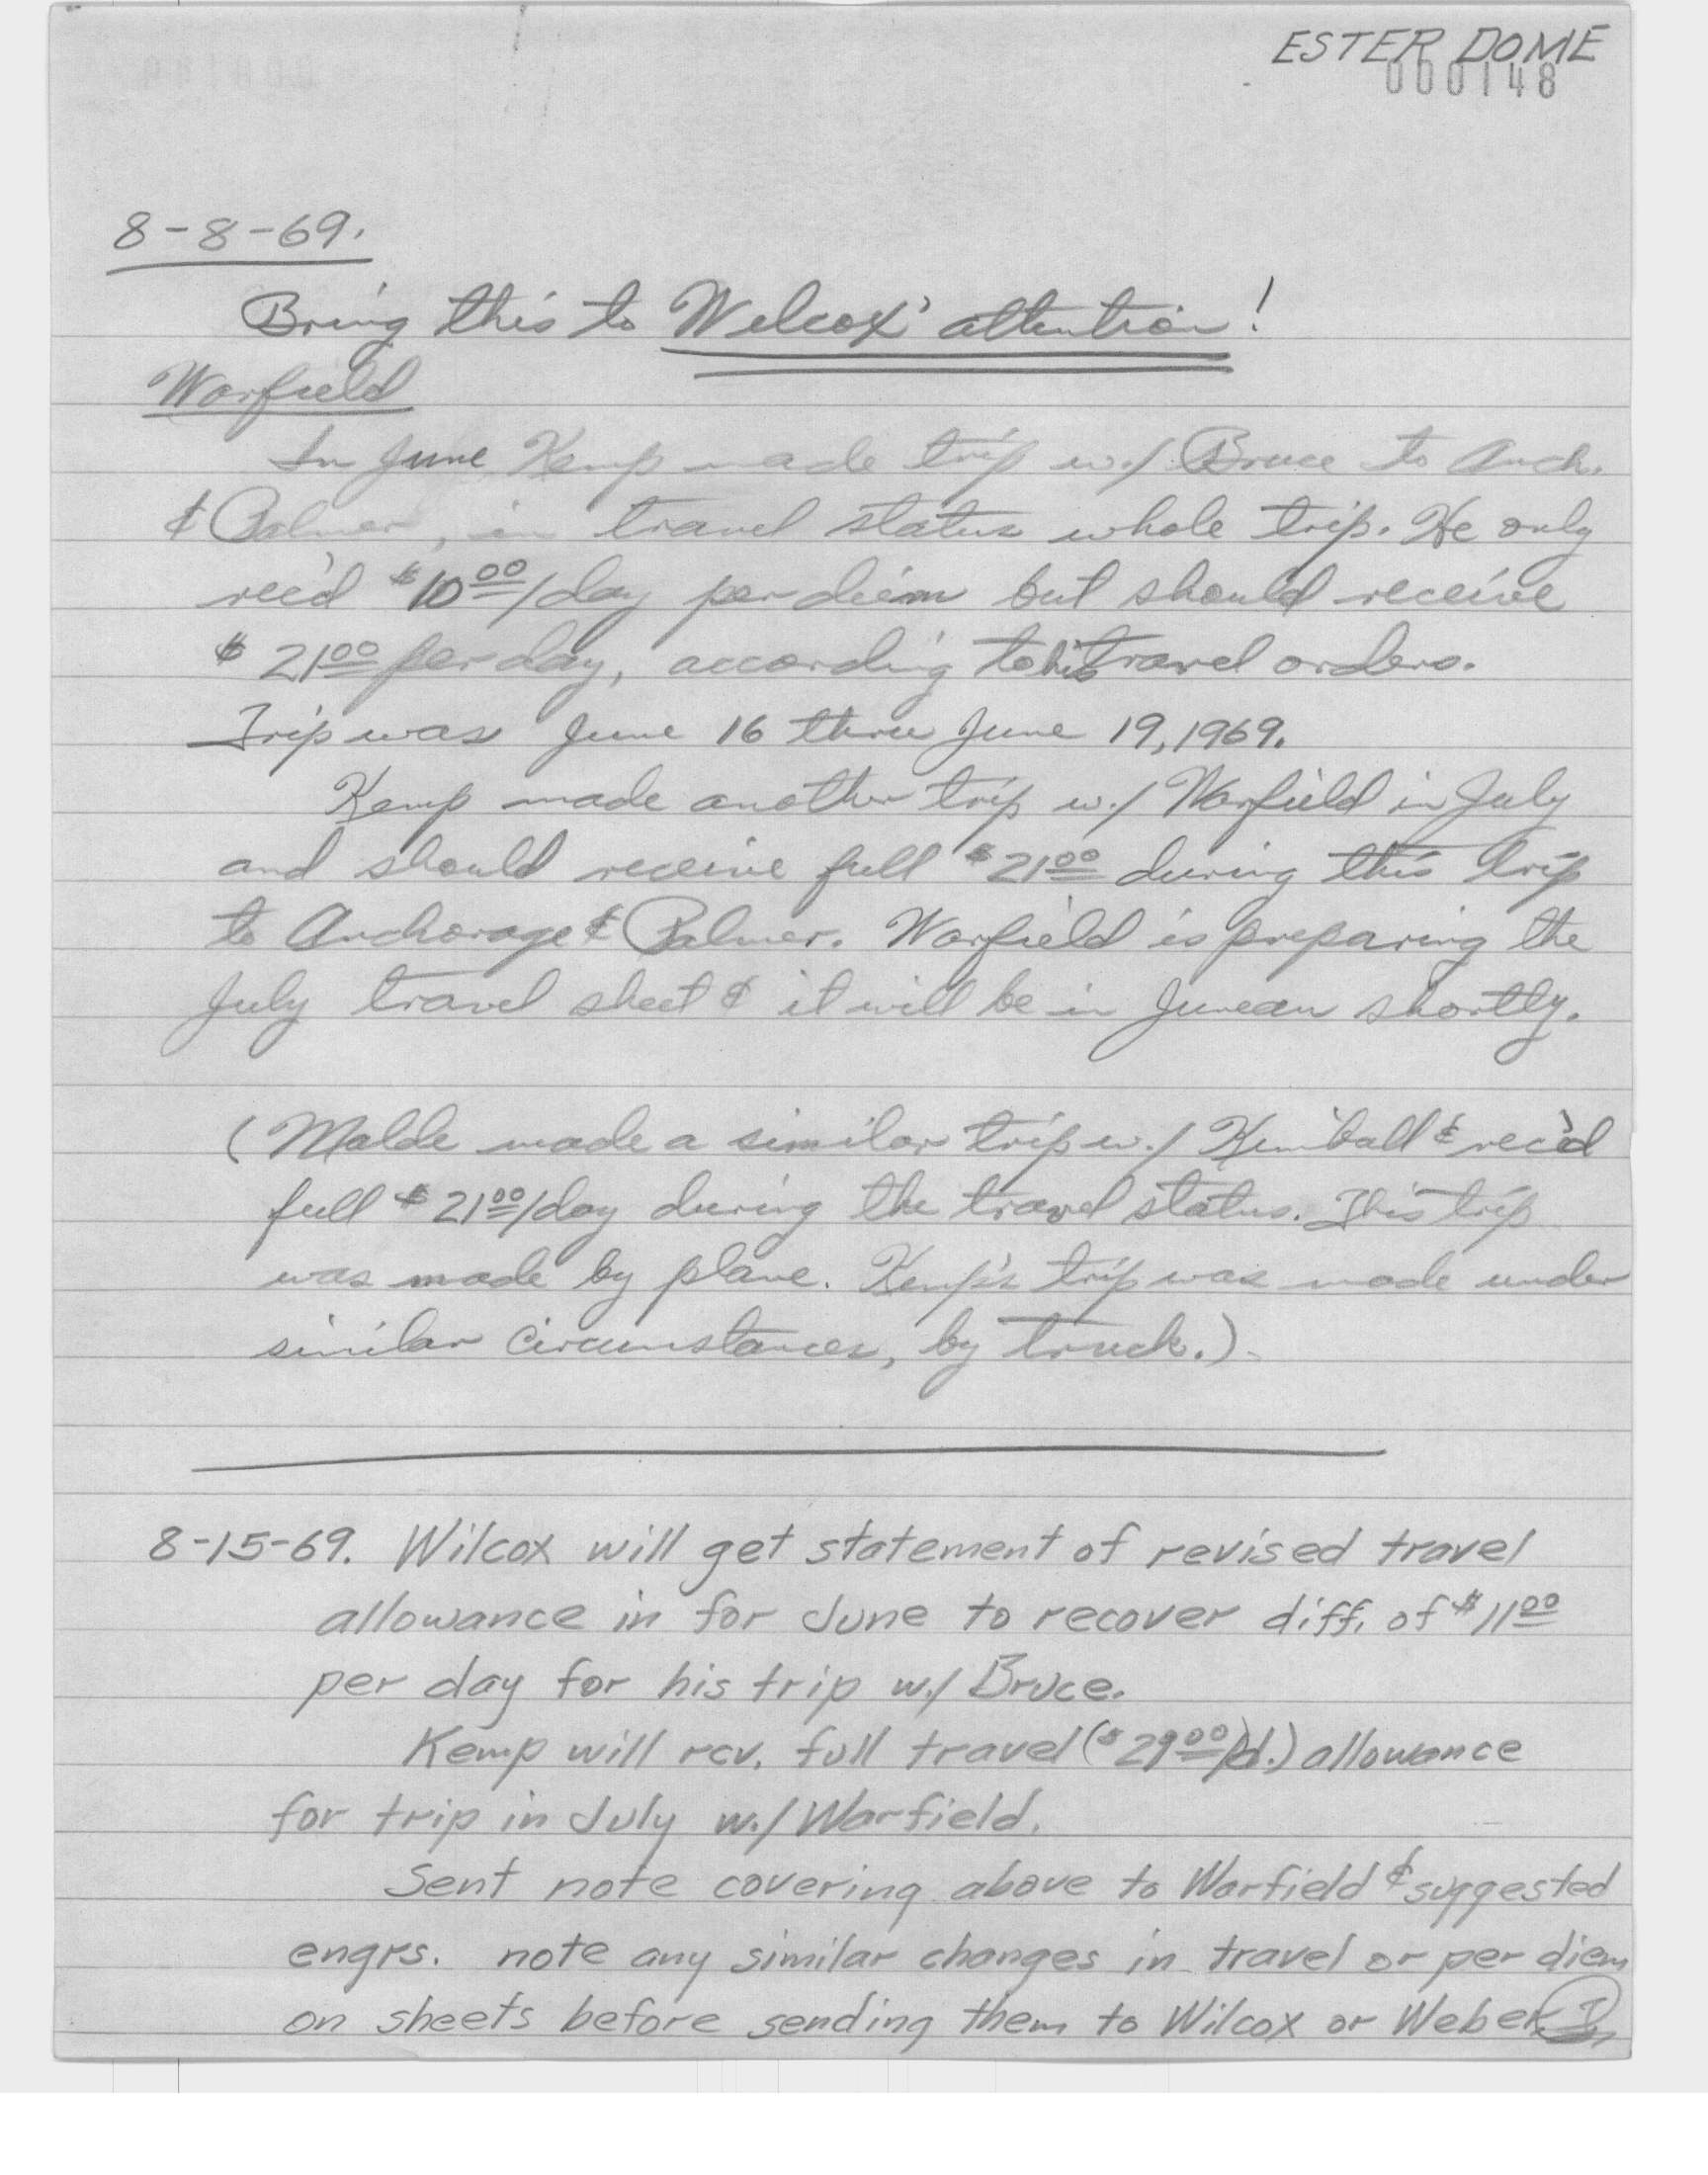 ESTER DOME
000148
8-8-69.
Bring this to Welcox' attention!
Warfield
In June Kemp made trip w./ Bruce to Anch.
& Palmer, in travel status whole trip. He only
rec'd $10.00/day per diem but should receive
$21.00 per day, according to his travel orders.
Trip was June 16 thru June 19, 1969.
Kemp made another trip w./ Warfield in July
and should receive full $21.00 during this trip
to Anchorage & Palmer. Warfield is preparing the
July travel sheet & it will be in Juneau shortly.
(Malde made a similar trip w./ Kimball & rec'd
full $21.00/day during the travel status. This trip
was made by plane. Kemp's trip was made under
similar circumstances, by truck.)
8-15-69. Wilcox will get statement of revised travel
allowance in for June to recover diff. of $11.00
per day for his trip w./ Bruce.
Kemp will rcv. full travel ($21.00/d.) allowance
for trip in July w./ Warfield.
Sent note covering above to Warfield & suggested
engrs. note any similar changes in travel or per diem
on sheets before sending them to Wilcox or Weber